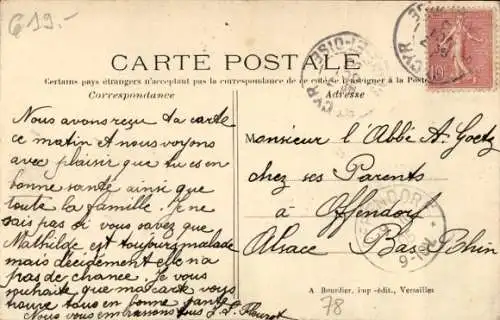 619.-
CARTE POSTALE
Certains pays étrangers n'acceptant pas la correspondance de ce côté se renseigner à la Poste
Correspondance
Adresse
Nous avons reçu ta carte
ce matin et nous voyons
avec plaisir que tu es en
bonne santé ainsi que
toute la famille. Je ne
sais pas si vous savez que
Mathilde est toujours malade
mais décidément elle n'a
pas de chance. Je vous
souhaite que ma carte vous
trouve tous en bonne santé
Nous vous embrassons tous
Monsieur l'Abbé A. Goetz
chez ses Parents
à Offendorf
Alsace Bas-Rhin
A. Bourdier, imp.-édit., Versailles
78